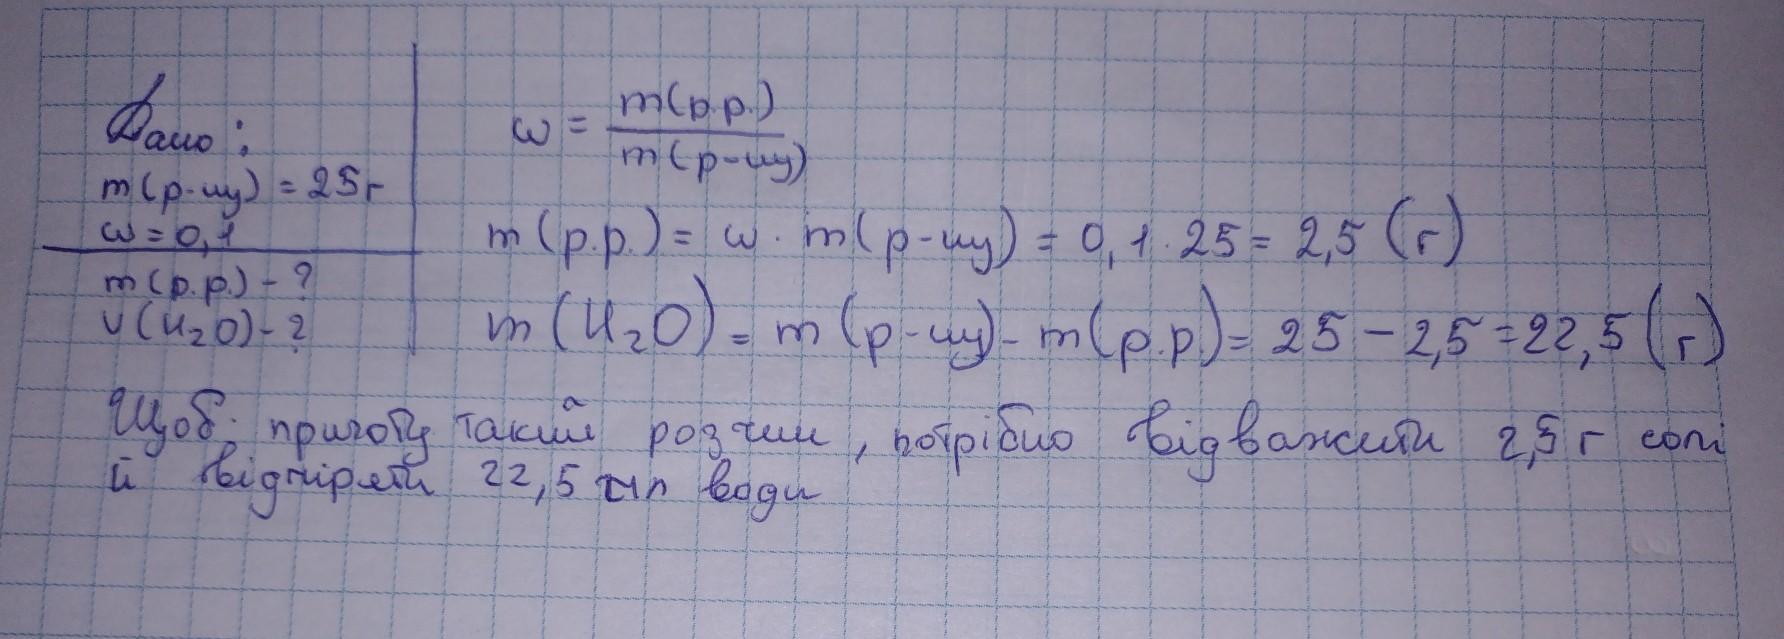 Дано:
m(р-ну) = 25г
ω = 0,1
m(р.р.) - ?
V(H₂O) - ?
ω = m(р.р.) / m(р-ну)
m(р.р.) = ω · m(р-ну) = 0,1 · 25 = 2,5 (г)
m(H₂O) = m(р-ну) - m(р.р.) = 25 - 2,5 = 22,5 (г)
Щоб такий розчин, потрібно відважити 2,5 г солі
й відміряти 22,5 мл води